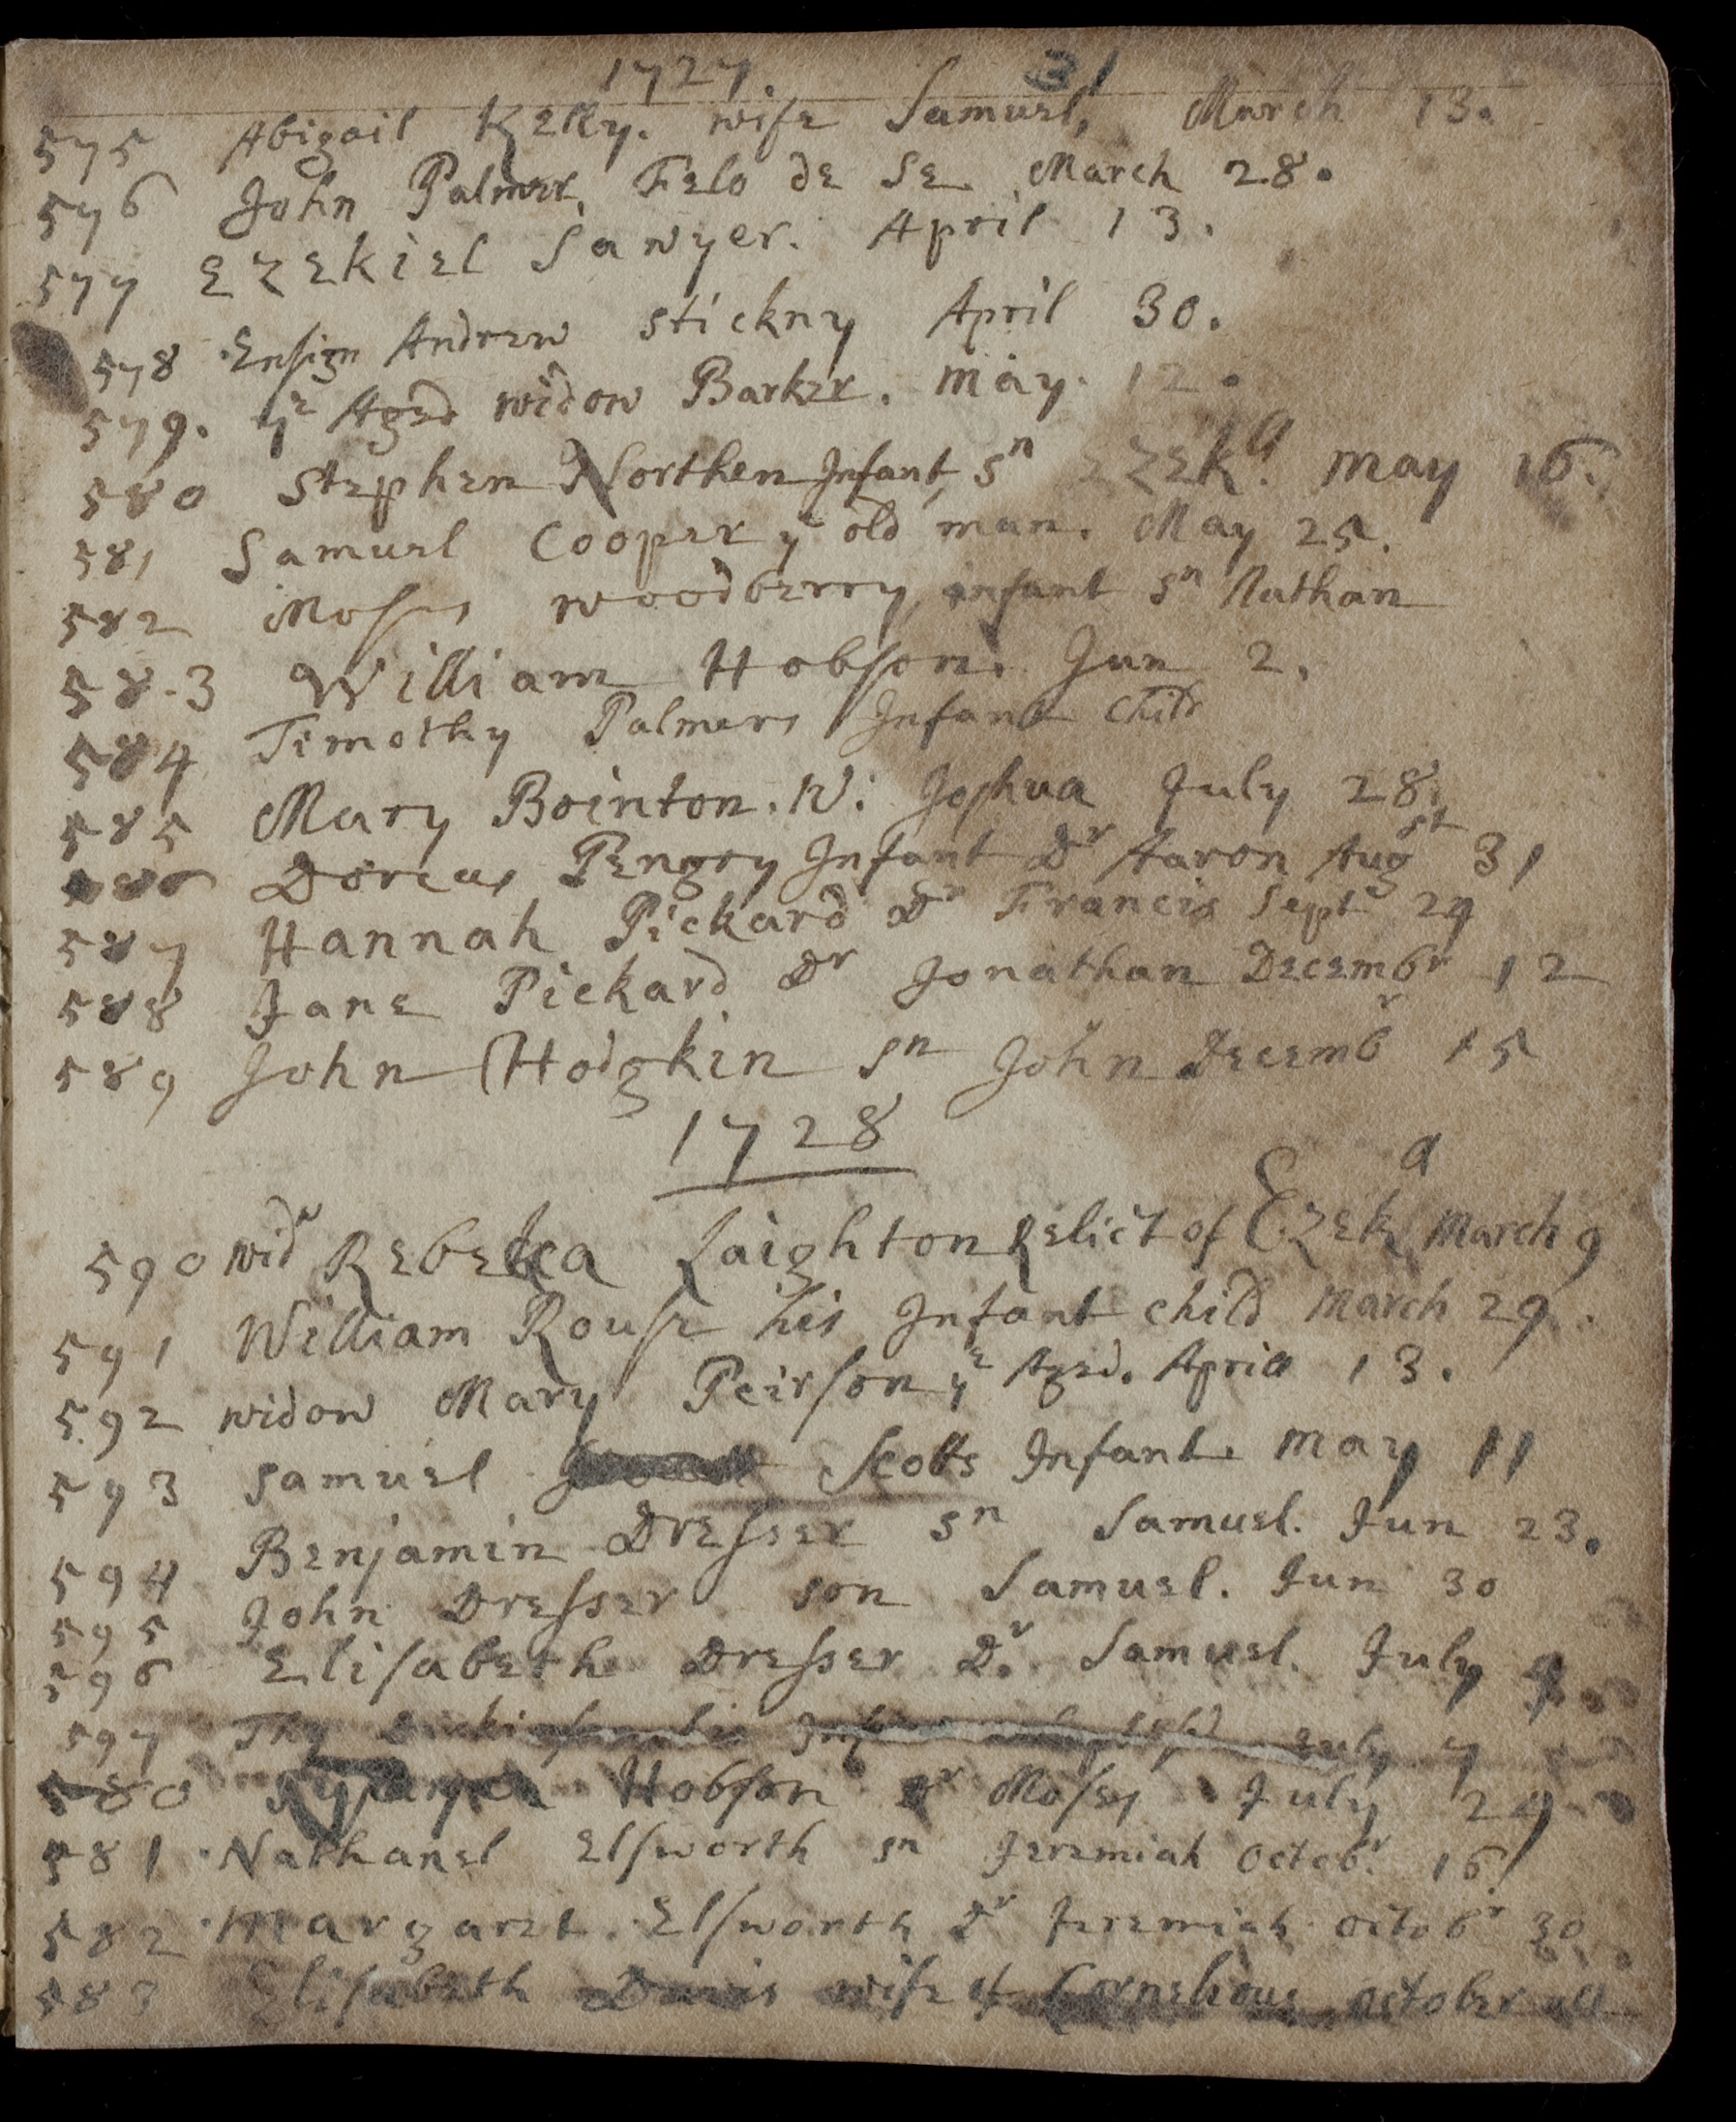 1727. 31
575 Abigail Kelly. wife Samuel, March 13.
576 John Palmer, Felo de se. March 28.
577 Ezekiel Sawyer. April 13.
578 Ensign Andrew Stickny April 30.
579. yᵉ Aged widow Barker. may. 12.
580 Stephen Northen Infant, sⁿ Ezekᵃ. may 16.
581 Samuel Cooper yᵉ old man. May 25.
582 Moses Woodberry infant sⁿ Nathan
58.3 William Hobson. Jun 2.
584 Timothy Palmers Infant Child
585 Mary Bointon. W: Joshua July 28.
586 Dorcas Pengry Infant Dʳ Aaron Augˢᵗ 31
587 Hannah Pickard Dʳ Francis Septʳ 29
588 Jane Pickard Dʳ Jonathan Decembʳ 12
589 John Hodgkin sⁿ John Decembʳ 15
1728
590 widʷ Rebekca Laighton Relict of Ezekᵃ March 9
591 William Rouse his Infant child March 29.
592 widow Mary Peirson yᵉ Aged. Aprill 13.
593 Samuel Scotts Infant. may 11
594 Benjamin Dresser sⁿ Samuel. Jun 23.
595 John Dresser son Samuel. Jun 30
596 Elisabeth Dresser Dʳ. Samuel. July 4.
597 July 7
580 Hobson Dʳ Moses July 29
581 Nathanel Elsworth sⁿ Jeremiah Octobʳ. 16.
582 Margaret. Elsworth Dʳ Jeremiah octobʳ 30
583 Elisabeth Davis wife of Cornelious october